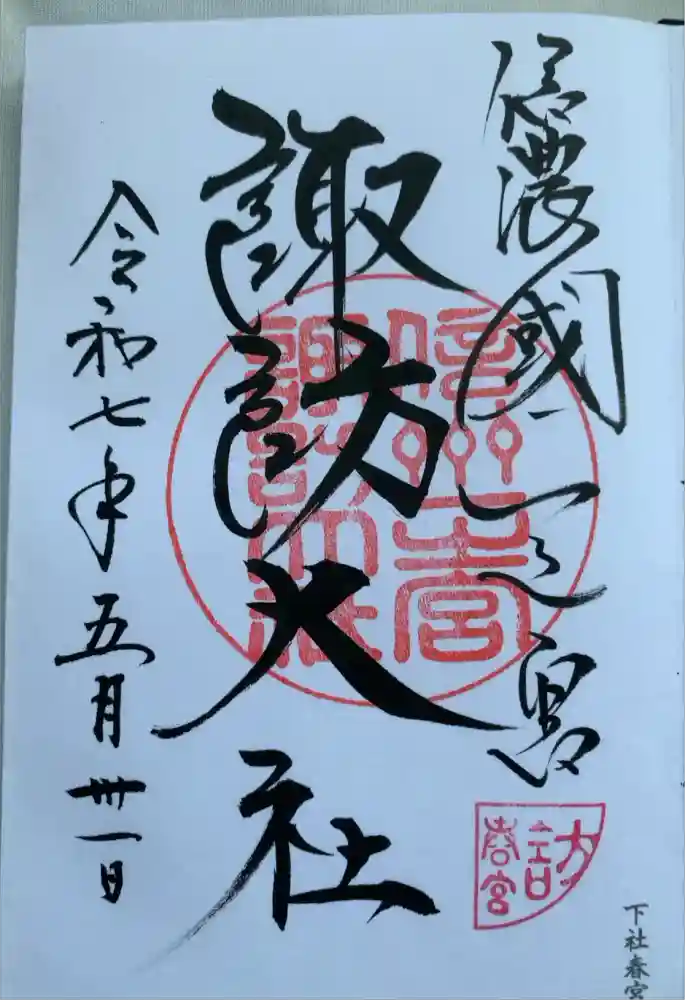 信濃國一之宮
諏訪大社
令和七年五月卅一日
信州一宮
諏訪大社
諏訪
春宮
下社春宮